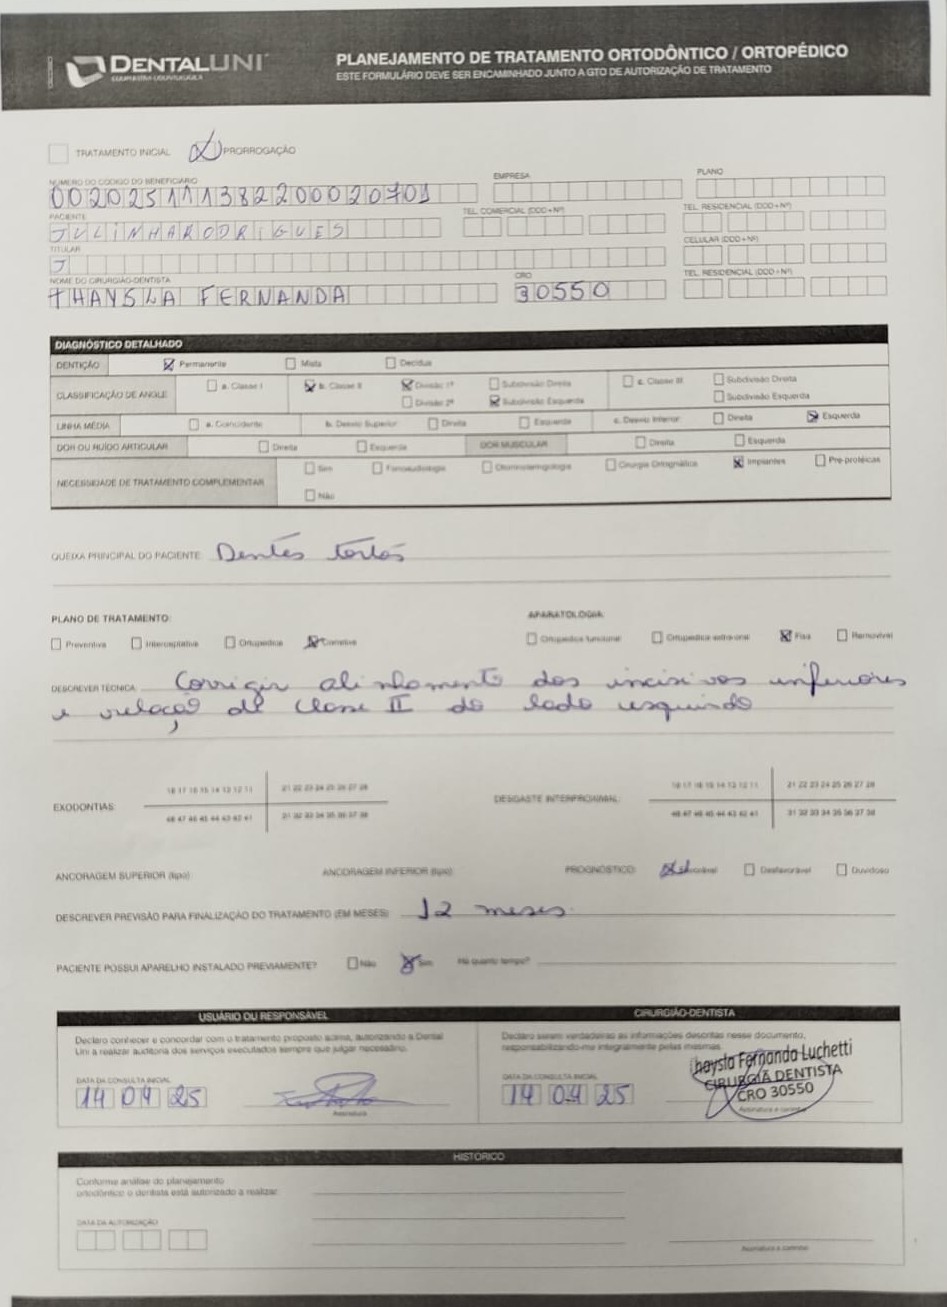 DENTALUNI
COOPERATIVA ODONTOLÓGICA
PLANEJAMENTO DE TRATAMENTO ORTODÔNTICO / ORTOPÉDICO
ESTE FORMULÁRIO DEVE SER ENCAMINHADO JUNTO A GTO DE AUTORIZAÇÃO DE TRATAMENTO
TRATAMENTO INICIAL PRORROGAÇÃO
NÚMERO DO CÓDIGO DO BENEFICIÁRIO EMPRESA PLANO
002025111382200020701
PACIENTE TEL. COMERCIAL (DDD+Nº) TEL. RESIDENCIAL (DDD+Nº)
JULINHARODRIGUES
TITULAR CELULAR (DDD+Nº)
J
NOME DO CIRURGIÃO-DENTISTA CRO TEL. RESIDENCIAL (DDD+Nº)
THAYSLA FERNANDA 30550
DIAGNÓSTICO DETALHADO
DENTIÇÃO Permanente Mista Decídua
CLASSIFICAÇÃO DE ANGLE a. Classe I b. Classe II Divisão 1ª Subdivisão Direita c. Classe III Subdivisão Direita
Divisão 2ª Subdivisão Esquerda Subdivisão Esquerda
LINHA MÉDIA a. Coincidente b. Desvio Superior Direita Esquerda c. Desvio Inferior Direita Esquerda
DOR OU RUÍDO ARTICULAR Direita Esquerda DOR MUSCULAR Direita Esquerda
NECESSIDADE DE TRATAMENTO COMPLEMENTAR Sim Fonoaudiologia Otorrinolaringologia Cirurgia Ortognática Implantes Pré-protéticas
Não
QUEIXA PRINCIPAL DO PACIENTE: Dentes tortos
PLANO DE TRATAMENTO: APARATOLOGIA:
Preventiva Interceptativa Ortopédica Corretiva Ortopédica funcional Ortopédica extra-oral Fixa Removível
DESCREVER TÉCNICA: Corrigir alinhamento dos incisivos inferiores
e relação de classe II do lado esquerdo
EXODONTIAS: 18 17 16 15 14 13 12 11 21 22 23 24 25 26 27 28 DESGASTE INTERPROXIMAL: 18 17 16 15 14 13 12 11 21 22 23 24 25 26 27 28
48 47 46 45 44 43 42 41 31 32 33 34 35 36 37 38 48 47 46 45 44 43 42 41 31 32 33 34 35 36 37 38
ANCORAGEM SUPERIOR (tipo) ANCORAGEM INFERIOR (tipo) PROGNÓSTICO: Favorável Desfavorável Duvidoso
DESCREVER PREVISÃO PARA FINALIZAÇÃO DO TRATAMENTO (EM MESES) 12 meses
PACIENTE POSSUI APARELHO INSTALADO PREVIAMENTE? Não Sim Há quanto tempo?
USUÁRIO OU RESPONSÁVEL CIRURGIÃO-DENTISTA
Declaro conhecer e concordar com o tratamento proposto acima, autorizando a Dental
Uni a realizar auditoria dos serviços executados sempre que julgar necessário.
Declaro serem verdadeiras as informações descritas nesse documento,
responsabilizando-me integralmente pelas mesmas.
DATA DA CONSULTA INICIAL DATA DA CONSULTA INICIAL
14 04 25 14 04 25
Assinatura
haysla Fernanda Luchetti
CIRURGIÃ DENTISTA
CRO 30550
Assinatura e carimbo
HISTÓRICO
Conforme análise do planejamento
ortodôntico o dentista está autorizado a realizar:
DATA DA AUTORIZAÇÃO
Assinatura e carimbo